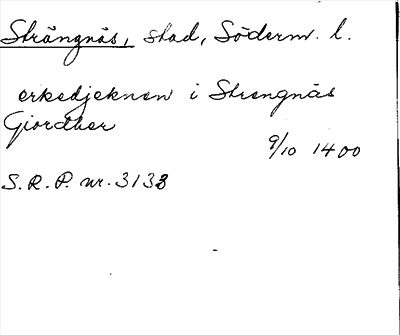 Strängnäs, stad, Söderm. l.
erkedjeknen i Strengnäs
Giordher
9/10 1400
S.R.P. nr. 3133